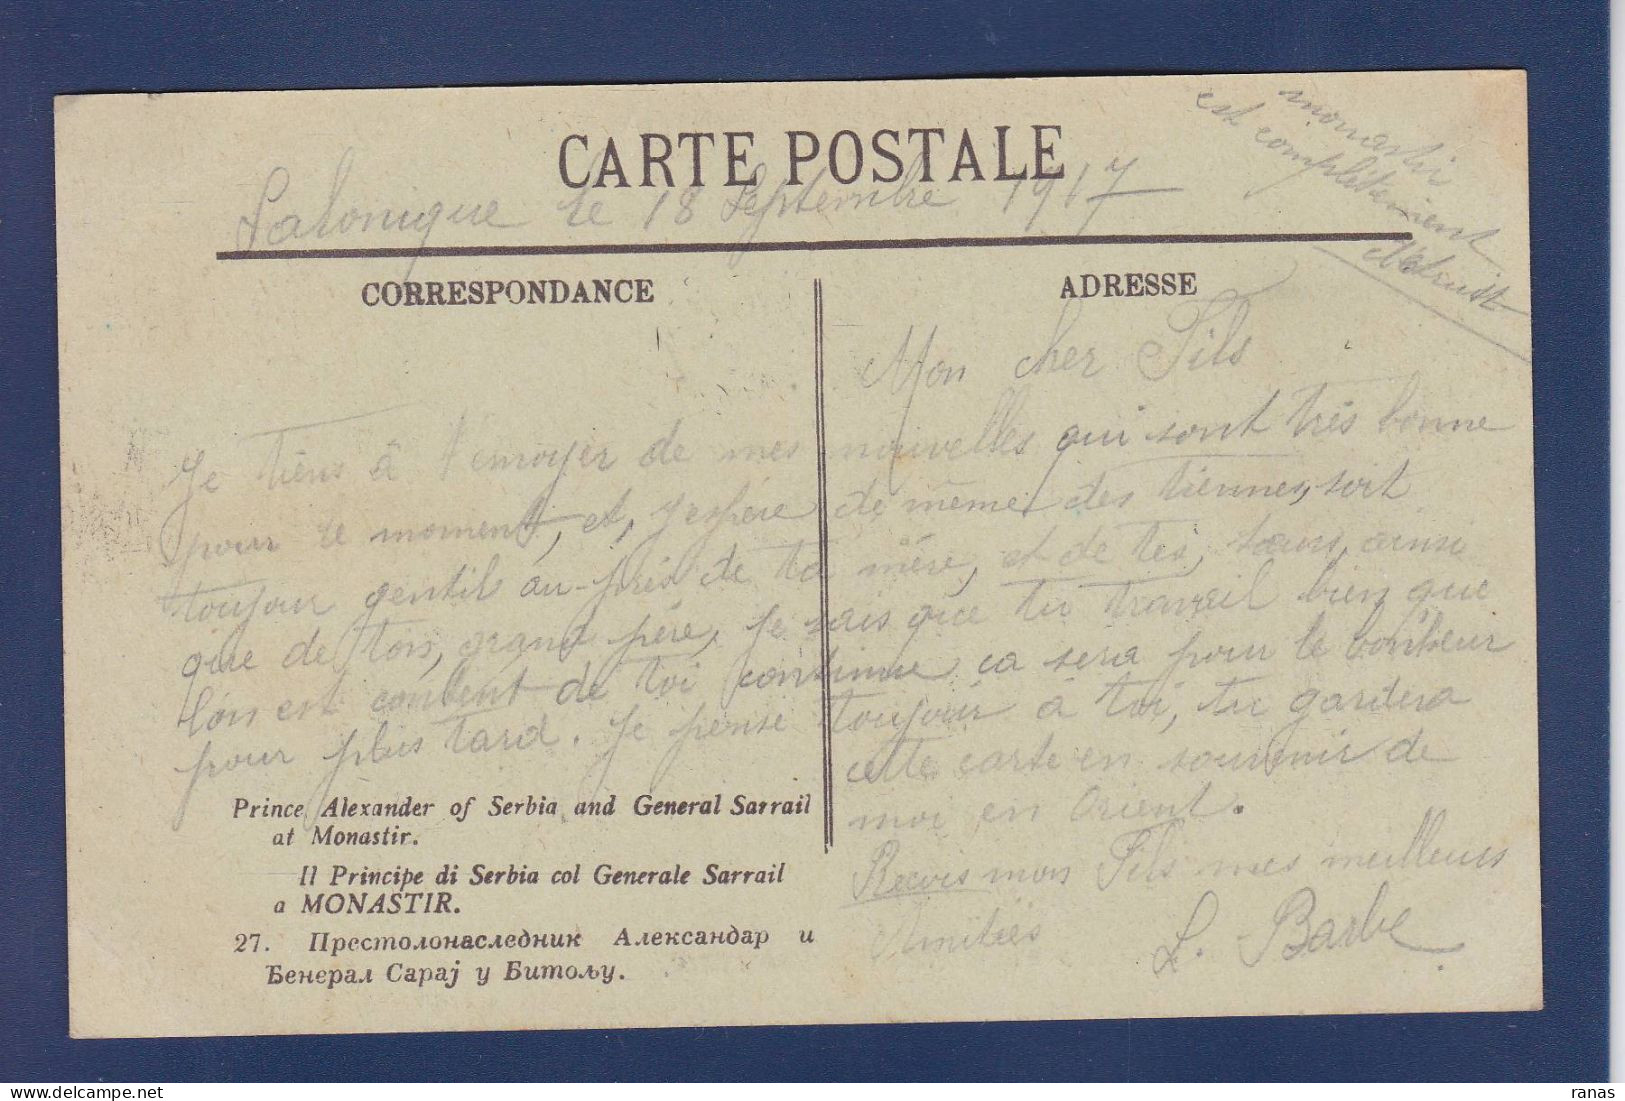 CARTE POSTALE
monastir
est complètement
détruit
Salonique le 18 Septembre 1917
CORRESPONDANCE
ADRESSE
Mon cher Fils
Je tiens à t'envoyer de mes nouvelles qui sont très bonne
pour le moment, et, j'espère de même des tiennes, soit
toujour gentil au-près de ta mère, et de tes, sœurs, ainsi
que de ton, grand père, Je sais que tu travail bien que
l'on est content de toi continue ca sera pour le bonheur
pour plus tard. Je pense toujour à toi, tu gardera
cette carte en souvenir de
moi en Orient.
Recois mon Fils mes meilleurs
Amitiés
L. Barbe
Prince Alexander of Serbia and General Sarrail
at Monastir.
Il Principe di Serbia col Generale Sarrail
a MONASTIR.
27. Престолонаследник Александар и
Ђенерал Сарај у Битољу.
ranas